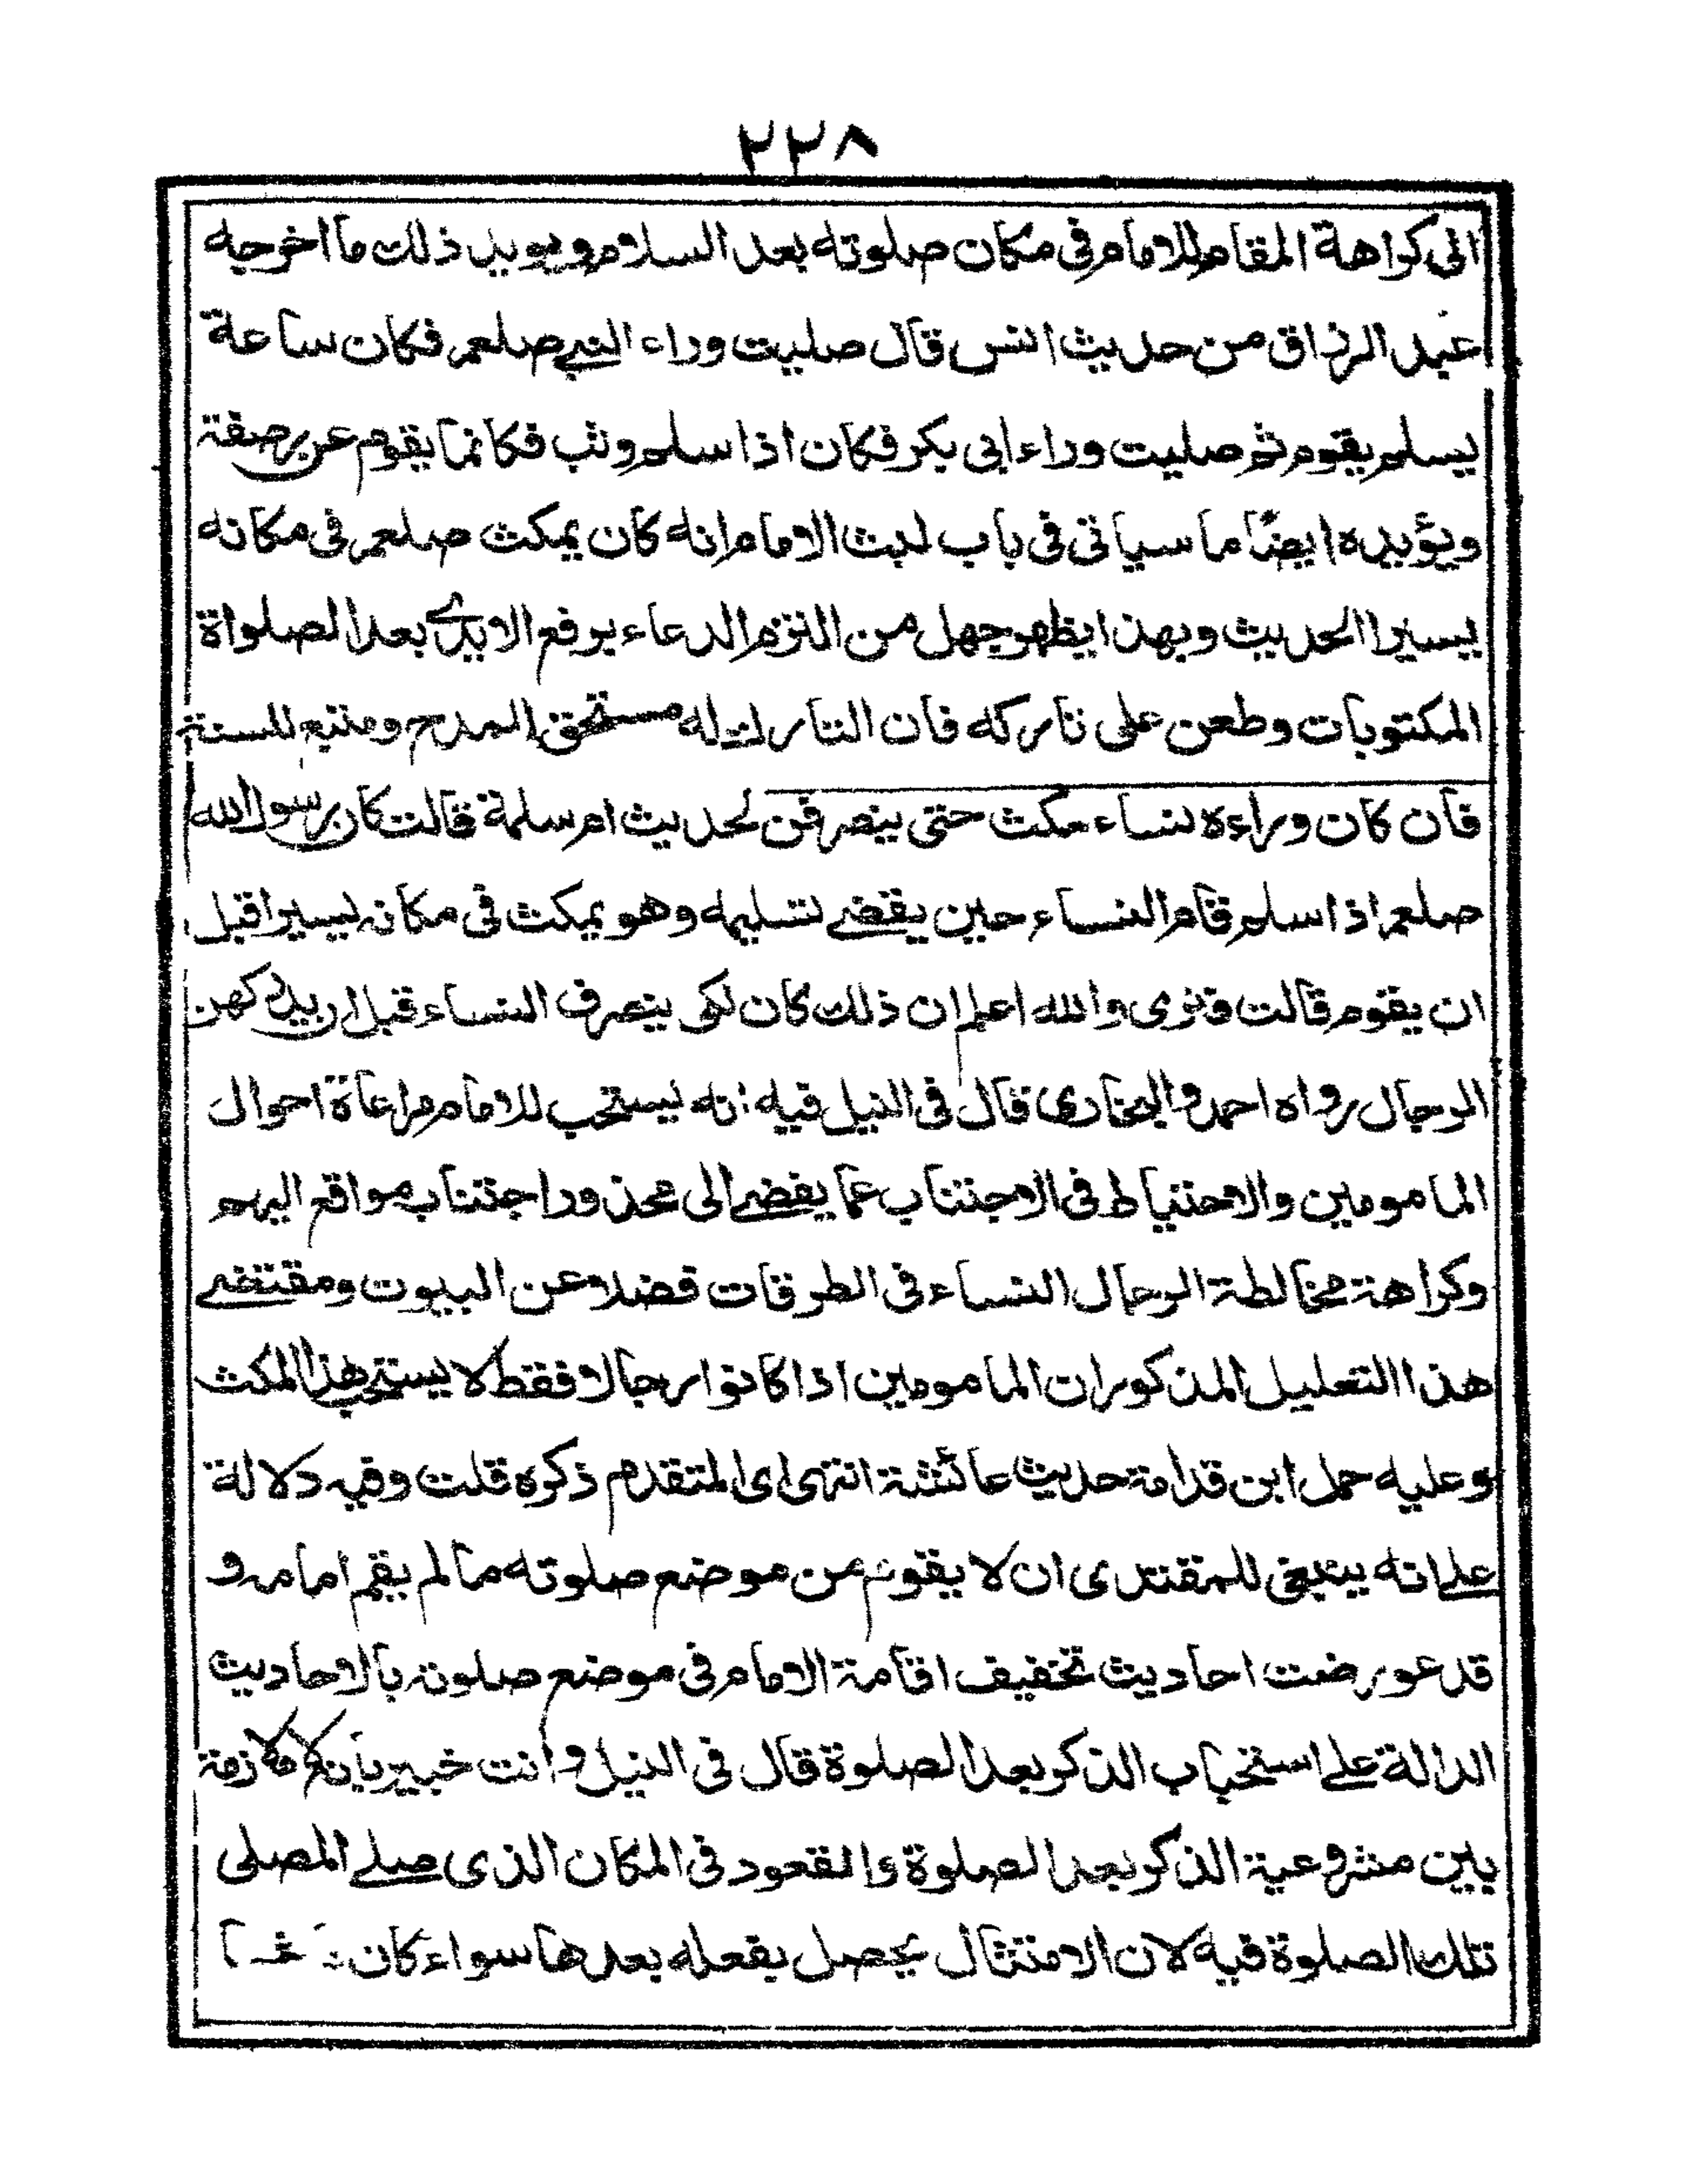 ٢٢٨
الى كراهة المقام للامام فى مكان صلوته بعد السلام ويويد ذلك ما اخرجه
عبد الرزاق من حديث انس قال صليت وراء النبي صلعم فكان ساعة
يسلم يقوم ثم صليت وراء ابى بكر فكان اذا سلم وثب فكانما يقوم عن رصفة
ويؤيده ايضا ما سياتى فى باب لبث الامام انه كان يمكث صلعم فى مكانه
يسيرا الحديث وبهذا يظهر جهل من التزم الدعاء برفع الايدي بعد الصلواة
المكتوبات وطعن على تاركه فان التارك له مستحق المدح ومتبع للسنة
فان كان وراءه نساء مكث حتى ينصرفن لحديث ام سلمة قالت كان رسول الله
صلعم اذا سلم قام النساء حين يقضے تسليمه وهو يمكث فى مكانه يسيرا قبل
ان يقوم قالت فنرى والله اعلم ان ذلك كان لكى ينصرف النساء قبل ان يدركهن
الرجال رواه احمد والبخارى قال فى النيل فيه انه يستحب للامام مراعاة احوال
المامومين والاحتياط فى الاجتناب عما يفضے الى محذور واجتناب مواقع التهم
وكراهة مخالطة الرجال النساء فى الطرقات فضلا عن البيوت ومقتضے
هذا التعليل المذكور ان المامومين اذا كانوا رجالا فقط لا يستحب هذا المكث
وعليه حمل ابن قدامة حديث عائشة انتهى اى المتقدم ذكره قلت وفيه دلالة
علے انه ينبغى للمقتدى ان لا يقوم من موضع صلوته ما لم يقم امامه و
قد عورضت احاديث تخفيف اقامة الامام فى موضع صلوته بالاحاديث
الدالة علے استحباب الذكر بعد الصلوة قال فى النيل وانت خبير بانه لا ملازمة
بين مشروعية الذكر بعد الصلوة والقعود فى المكان الذى صلے المصلى
تلك الصلوة فيه لان الامتثال يحصل بفعله بعدها سواء كان